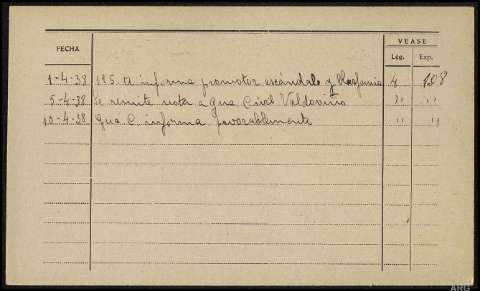 VEASE
FECHA
Leg. Exp.
1-4-38 195 A informa promotor escándalo y blasfemia 4 128
5-4-38 se remite nota a Gua Civil Valdoviño " "
10-4-38 Gua C. informa favorablemente " "
ARG